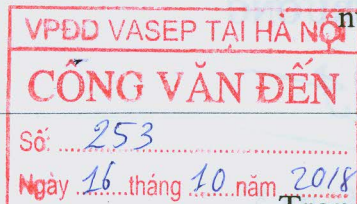 VPĐD VASEP TẠI HÀ NỘI
CÔNG VĂN ĐẾN
Số: 253
Ngày 16 tháng 10 năm 2018